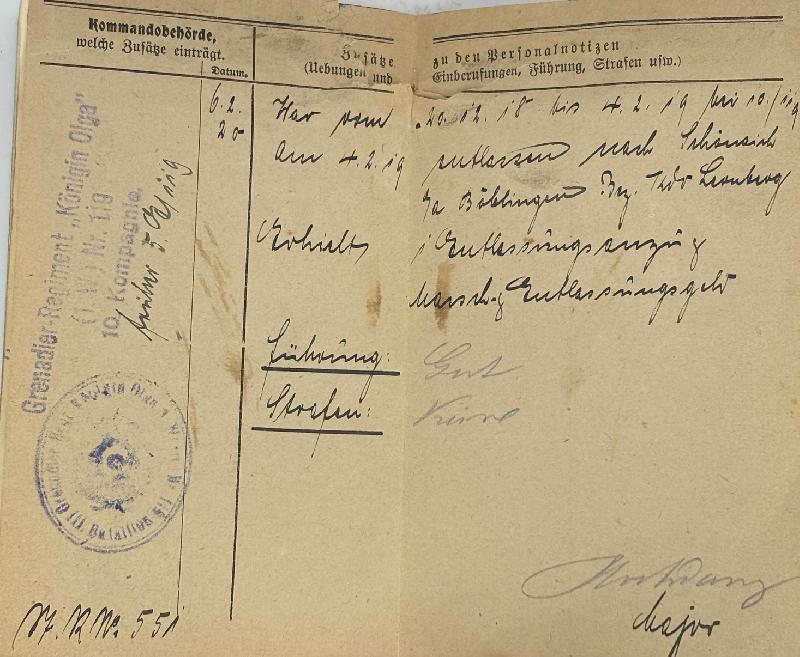 Kommandobehörde,
welche Zusätze einträgt.
Datum.
Zusätze zu den Personalnotizen
(Uebungen und Einberufungen, Führung, Strafen usw.)
Grenadier-Regiment „Königin Olga"
(1. W.) Nr. 119
10. Kompagnie.
früher 5
6.2.
20
War vom 20.12.18 bis 4.2.19 bei 10./119
am 4.2.19 entlassen nach Schönaich
Böblingen Bez. Kdo Leonberg
Erhielt 1 Entlassungsanzug
Marsch- & Entlassungsgeld
Führung: Gut
Strafen: Keine
Major
No. 551